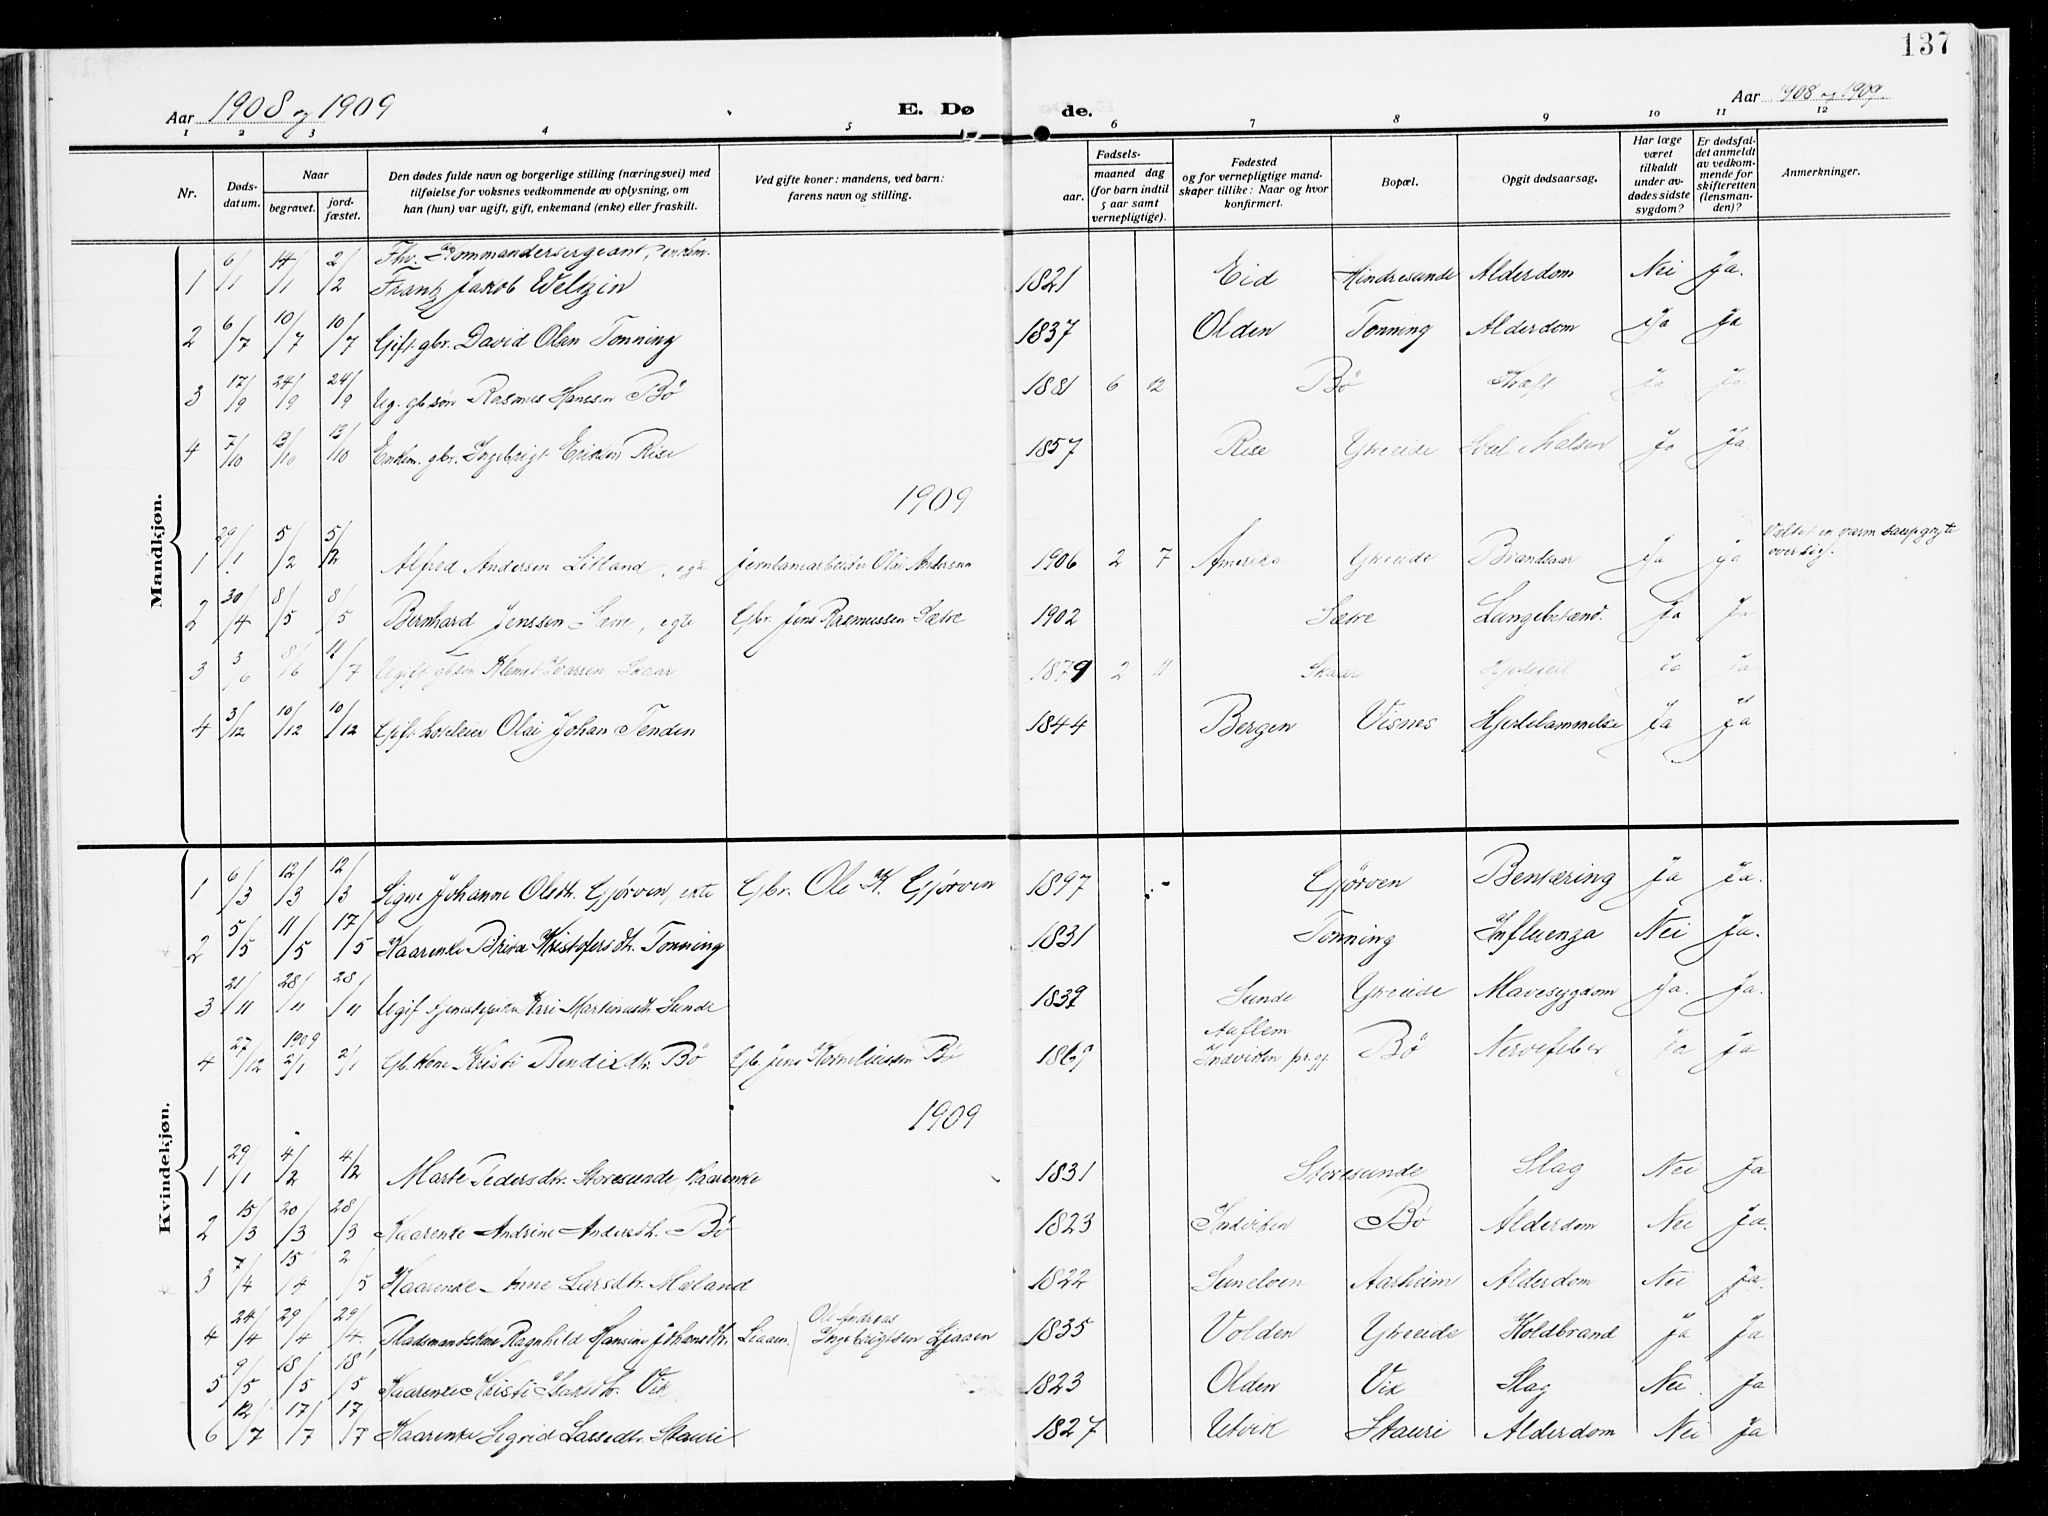 137
Aar 1908 og 1909
E. Dø
de.
Aar 1908 og 1909.
1 2 3 4 5 6 7 8 9 10 11 12
Nr.
Døds-
datum.
Naar
begravet.
jord-
fæstet.
Den dødes fulde navn og borgerlige stilling (næringsvei) med
tilføielse for voksnes vedkommende av oplysning, om
han (hun) var ugift, gift, enkemand (enke) eller fraskilt.
Ved gifte koner: mandens, ved barn:
farens navn og stilling.
Fødsels-
aar.
maaned dag
(for barn indtil
5 aar samt
vernepligtige).
Fødested
og for vernepligtige mand-
skaper tillike: Naar og hvor
konfirmert.
Bopæl.
Opgit dødsaarsag.
Har læge
været
tilkaldt
under av-
dødes sidste
sygdom?
Er dødsfal-
det anmeldt
av vedkom-
mende for
skifteretten
(lensman-
den)?
Anmerkninger.
Mandkjøn.
Fhv. Kommandersergeant, enkem.
1 6/1 14/1 2/2 Frantz Jakob Weltzin 1821 Eid Hindresunde Alderdom Nei Ja.
2 6/7 10/7 10/7 Gift gbr. David Olsen Tonning 1837 Olden Tonning Alderdom Ja Ja
3 17/9 24/9 24/9 Ug. gbsøn Rasmus Hanssen Bö 1881 6 12 Bö Kræft Ja Ja
4 7/10 13/10 13/10 Enkem. gbr. Ingebrigt Eriksen Rise 1857 Rise Ytreeide Ja Ja.
1909
1 29/1 5/2 5/2 Alfred Andersen Litland, egte Jernbanearbeider Olai Andersen 1906 2 7 Amerika Ytreeide Brandsaar Ja Ja Væltet en varm saupgryte
over sig.
2 30/4 8/5 8/5 Bernhard Jenssen Sætre, egte Gbr. Jens Rasmussen Sætre 1902 Sætre Lungebetænd. Ja Ja
3 3/6 8/6 11/7 Ugift gbsøn Klemet Ivarsen Skaar 1879 2 11 Skaar Hjertefeil Ja Ja
4 3/12 10/12 10/12 Gift hoteleier Olai Johan Tenden 1844 Bergen Visnes Hjertelammelse Ja Ja
Kvindekjøn.
1 6/3 12/3 12/3 Signe Johanne Olsdtr. Gjørven, ekte Gbr. Ole K. Gjørven 1897 Gjörven Bentæring Ja Ja.
2 5/5 11/5 17/5 Kaarenke Brita Kristofersdtr. Tonning 1831 Tonning Influenza Nei Ja.
3 21/11 28/11 28/11 Ugif tjenestepike Kari Martinusdtr Sunde 1839 Sunde Ytreeide Mavesygdom Ja. Ja.
Auflem
4 27/12 1909 2/1 2/1 Gb. kone Kristi Bendixdtr. Bö Gb. Jens Korneliussen Bö 1869 Indviken pr.gj. Bö Nervefeber Ja Ja
1909
1 29/1 4/2 4/2 Marte Pedersdtr. Storesunde, Kaarenke 1831 Storesunde Slag Nei Ja
2 15/3 20/3 28/3 Kaarenke Andrine Andersdtr. Bö 1823 Indviken Bö Alderdom Nei Ja.
3 7/4 15/4 2/5 Kaarenke Anne Larsdtr. Mæland 1822 Sunelven Aarheim Alderdom Nei Ja.
Ole Andreas
4 24/4 29/4 29/4 Pladsmandskone Ragnhild Hansine Johansdtr. Liaaen Ingebrigtsen Liaaen 1835 Volden Ytreeide Koldbrand Ja Ja
5 9/5 18/5 18/5 Kaarenke Kristi Isaksdtr. Vik 1823 Olden Vik Slag Nei. Ja
6 12/7 17/7 17/7 Kaarenke Sigrid Lassedtr. Skauri 1827 Utvik Skauri Alderdom Nei Ja